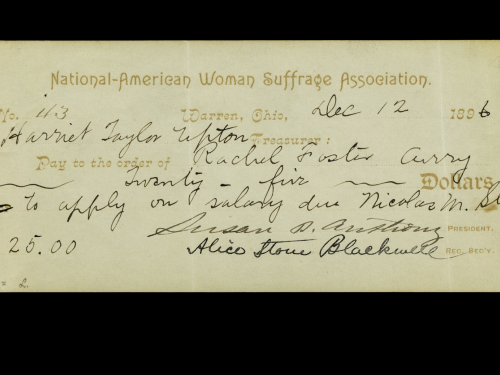 National-American Woman Suffrage Association.
No. 113 Warren, Ohio, Dec 12 1896
Harriet Taylor Upton Treasurer:
Pay to the order of Rachel Foster Avery
Twenty-five Dollars
to apply on salary due Nicolas M.
25.00 Susan B. Anthony PRESIDENT.
Alice Stone Blackwell REC. SEC'Y.
= 2.